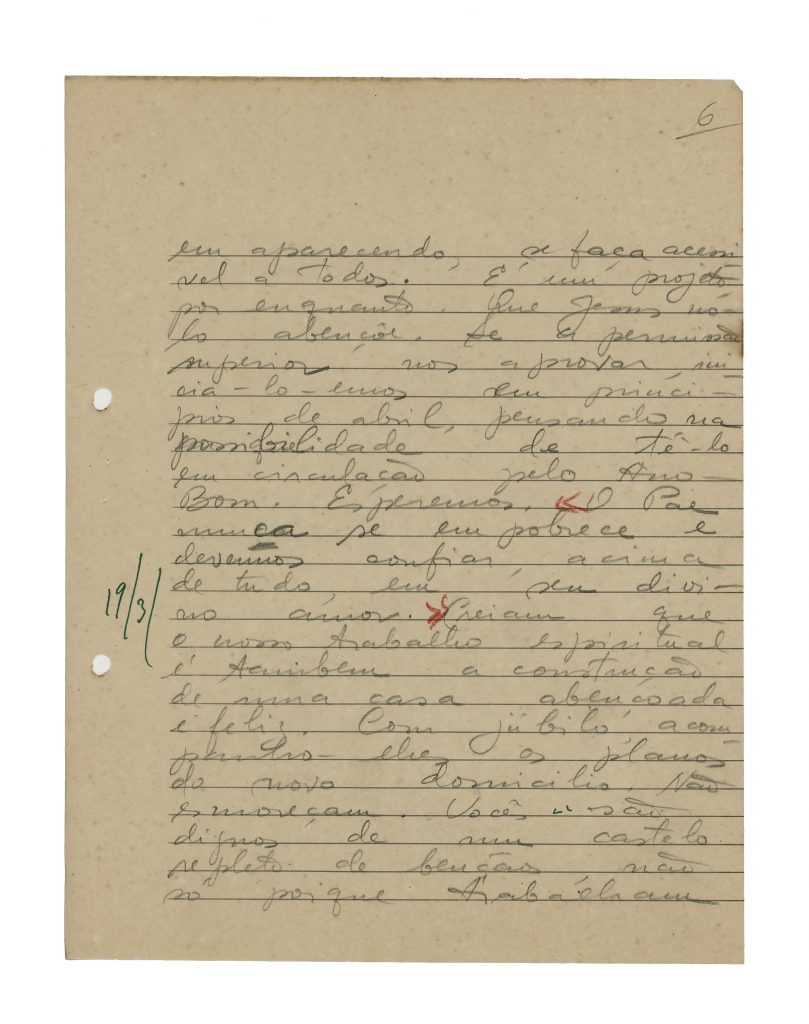 6
em aparecendo, se faça acessi
vel a todos. É um projeto
por enquanto. Que Jesus nô-
lo abençôe. Se a permissão
superior nos aprovar, ini
cia-lo-emos em princi-
pios de abril, pensando na
possibilidade de tê-lo
em circulação pelo Ano-
Bom. Esperemos. O Pae
nunca se empobrece e
devemos confiar, acima
de tudo, em seu divi-
19/3/
no amor. Creiam que
o nosso trabalho espiritual
é tambem a construção
de uma casa abençoada
e feliz. Com júbilo, acom
panho-lhes os planos
do novo domicilio. Não
esmoreçam. Vocês são
dignos de um castelo
repleto de bençãos não
só porque trabalham